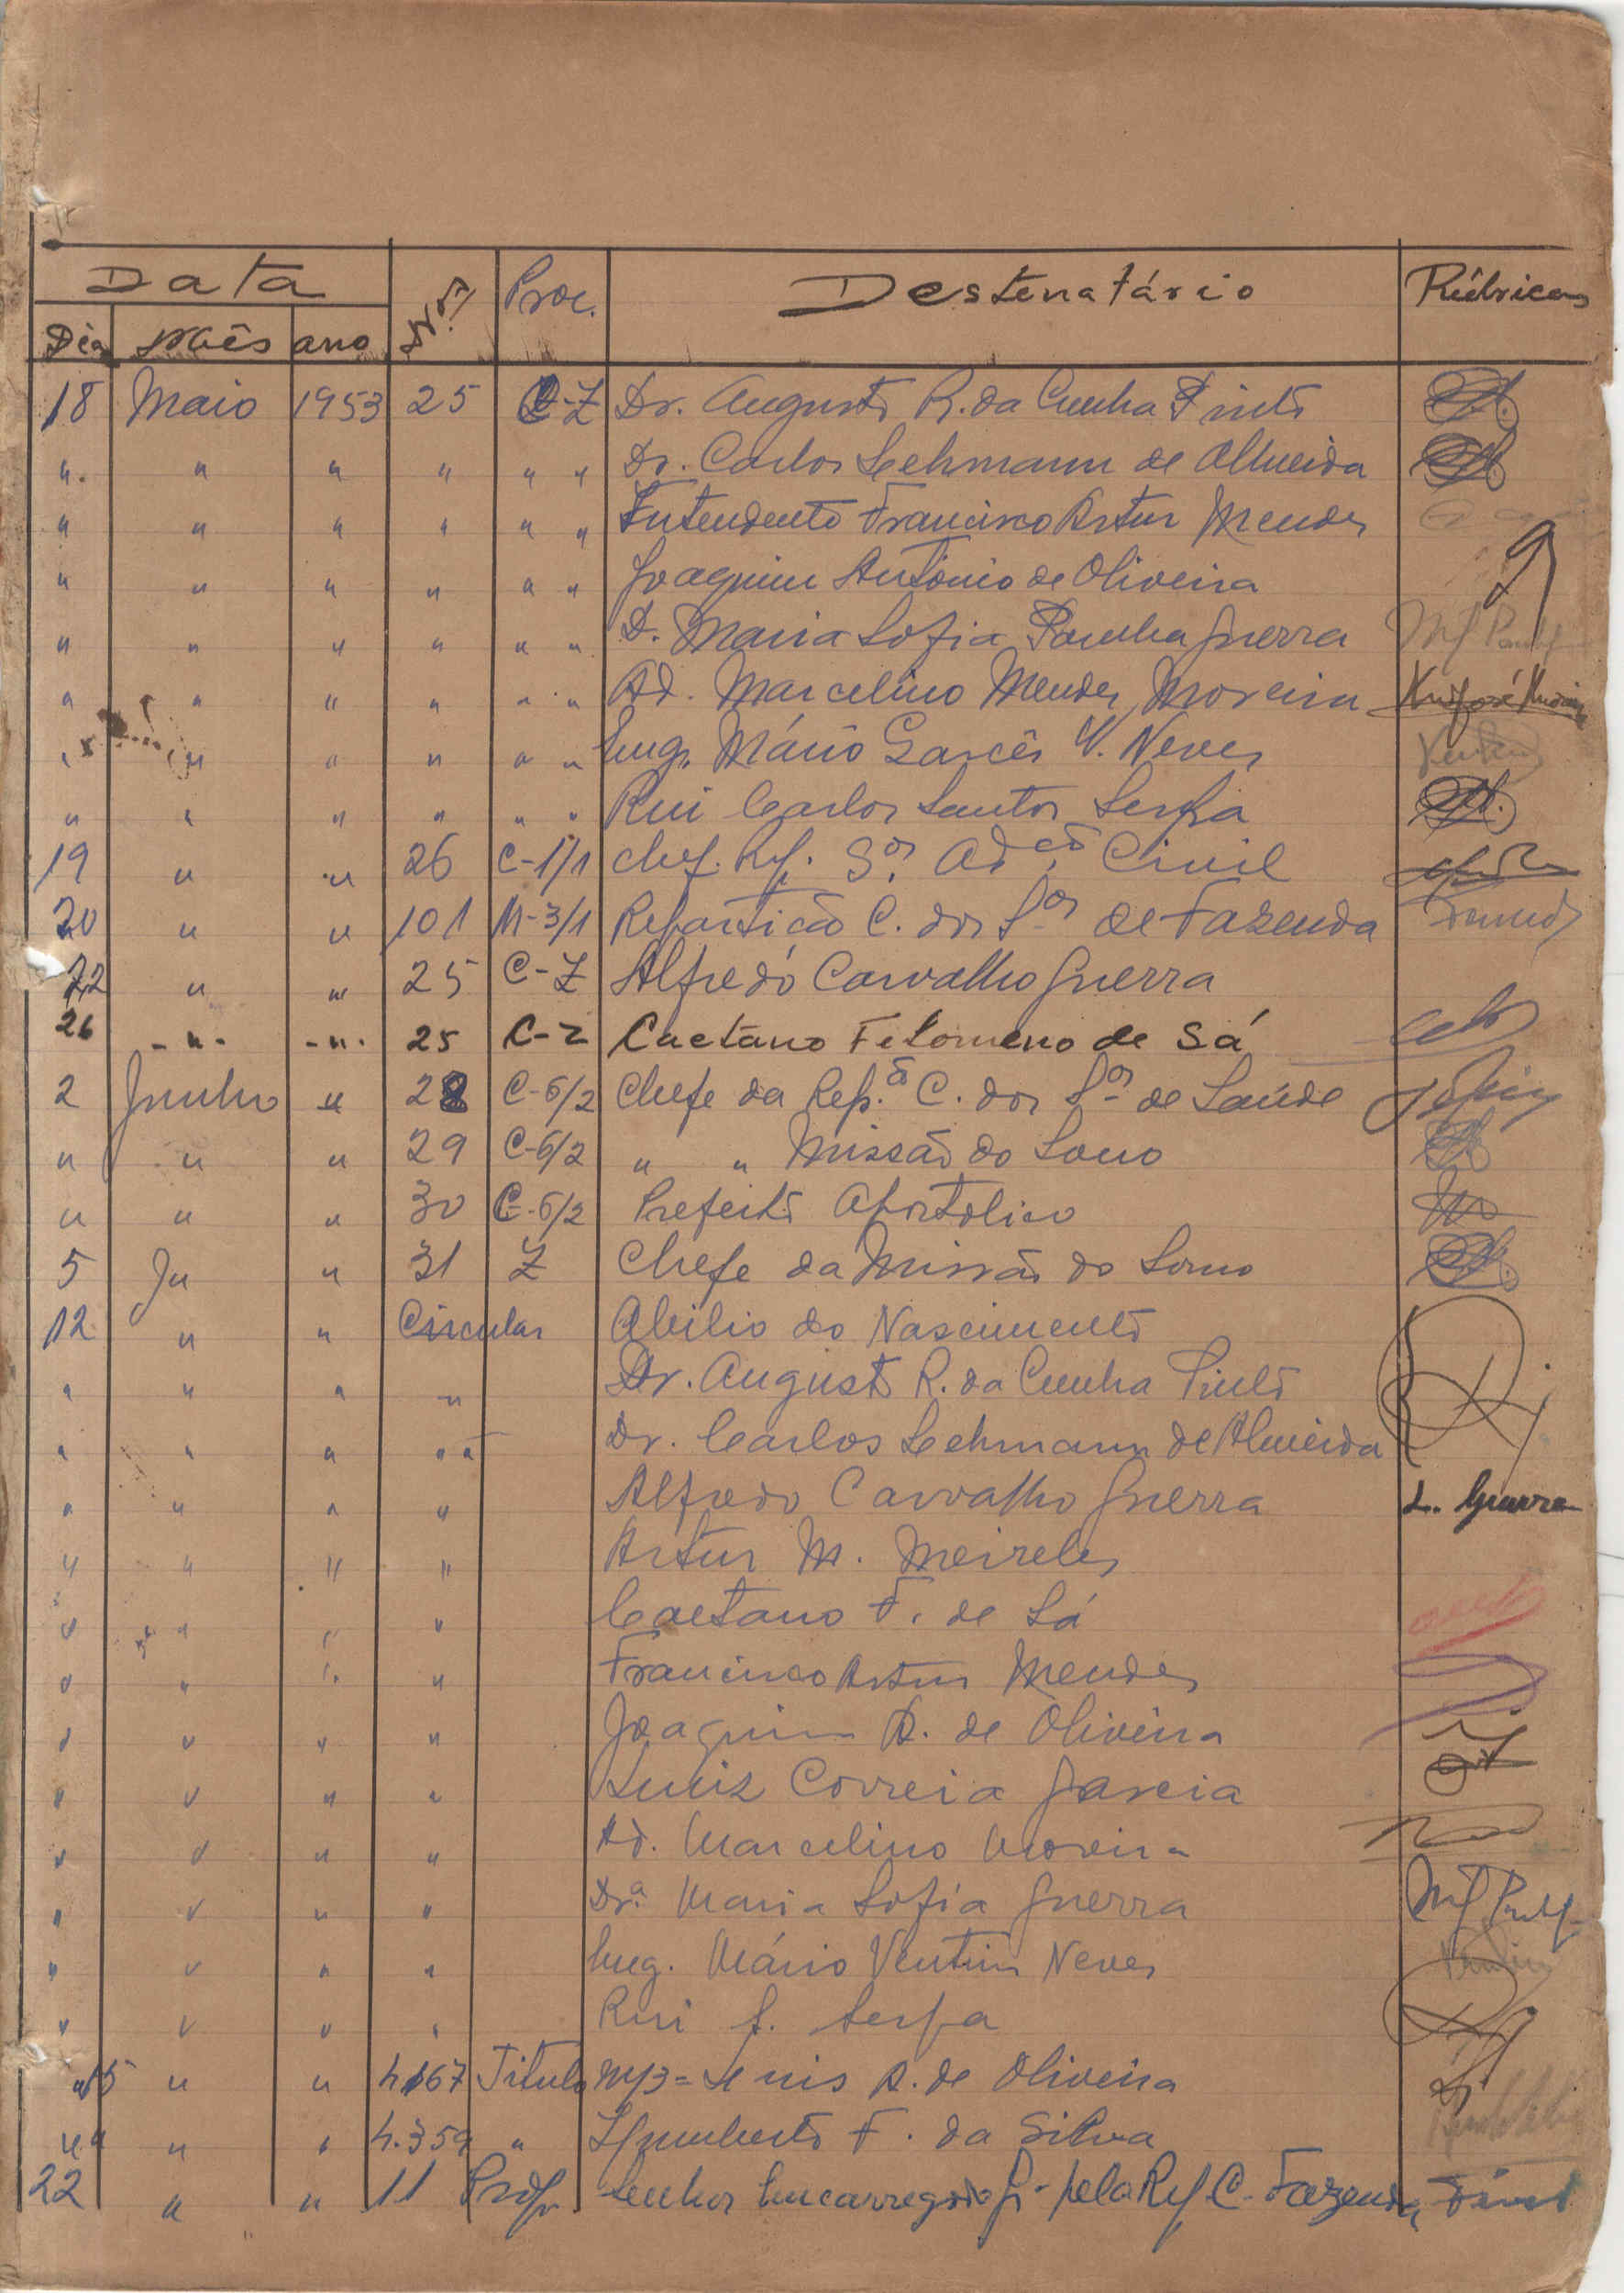 Data Nos Proc. Destenatário Rúbricas
Dia Mês ano
18 Maio 1953 25 C-Z Dr. Augusto R. da Cunha Pinto
" " " " " " Dr. Carlos Lehmann de Almeida
" " " " " " Intendente Francisco Artur Mendes
" " " " " " Joaquim António de Oliveira
" " " " " " D. Maria Sofia Pomba Guerra
" " " " " " Ad. Marcelino Mendes Moreira
" " " " " " Eng. Mário Garcês V. Neves
" " " " " " Rui Carlos Santos Serpa
19 " " 26 C-1/1 Chef. Rep. Sos. Adção Civil
20 " " 101 M-3/1 Repartição C. dos Sos de Fazenda
22 " " 25 C-Z Alfredo Carvalho Guerra
26 -"- -"- 25 C-Z Caetano Felomeno de Sá
2 Junho " 28 C-6/2 Chefe da Rep.ão C. dos Sos de Saúde
" " " 29 C-6/2 " " Missão do Sono
" " " 30 C-6/2 Prefeito Apostolico
5 Ju " 31 Z Chefe da Missão do Sono
12 " " Circular Abilio do Nascimento
" " " " Dr. Augusto R. da Cunha Pinto
" " " " " Dr. Carlos Lehmann de Almeida
" " " " Alfredo Carvalho Guerra L. Guerra
" " " " Artur M. Meireles
" " " " Caetano F. de Sá
" " " " Francisco Artur Mendes
" " " " Joaquim A. de Oliveira
" " " " Luiz Correia Garcia
" " " " Ad. Marcelino Moreira
" " " " Dra. Maria Sofia Guerra
" " " " Eng. Mário Ventim Neves
" " " " Rui S. Serpa
15 " " 4.167 Titulo Luis A. de Oliveira
" " " 4.359 " Humberto F. da Silva
22 " " 11 Senhor Encarregado pela Rep. C. Fazenda